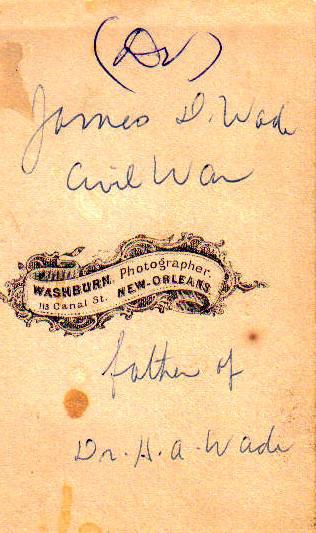 (Dr)
James D. Wade
Civil War
WASHBURN, Photographer,
113 Canal St. NEW-ORLEANS
father of
Dr. H. A. Wade